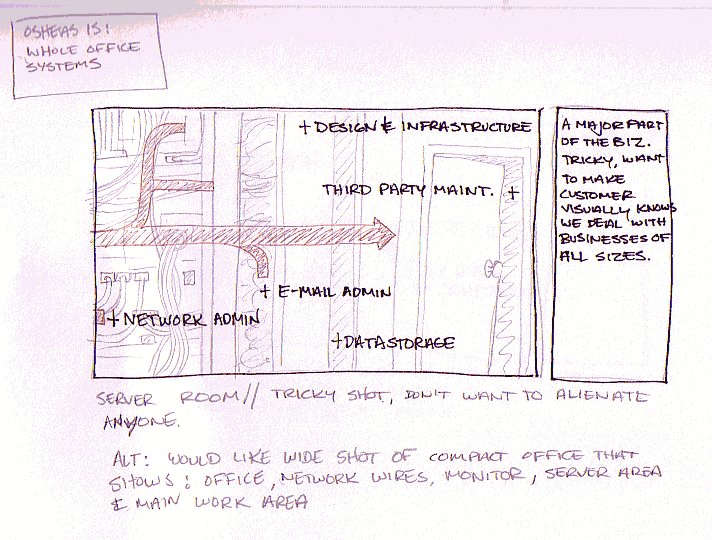 OSHEAS IS:
WHOLE OFFICE
SYSTEMS
+ DESIGN & INFRASTRUCTURE
THIRD PARTY MAINT. +
+ E-MAIL ADMIN
+ NETWORK ADMIN
+ DATA STORAGE
A MAJOR PART
OF THE BIZ.
TRICKY, WANT
TO MAKE
CUSTOMER
VISUALLY KNOWS
WE DEAL WITH
BUSINESSES OF
ALL SIZES.
SERVER ROOM // TRICKY SHOT, DON'T WANT TO ALIENATE
ANYONE.
ALT: WOULD LIKE WIDE SHOT OF COMPACT OFFICE THAT
SHOWS: OFFICE, NETWORK WIRES, MONITOR, SERVER AREA
& MAIN WORK AREA